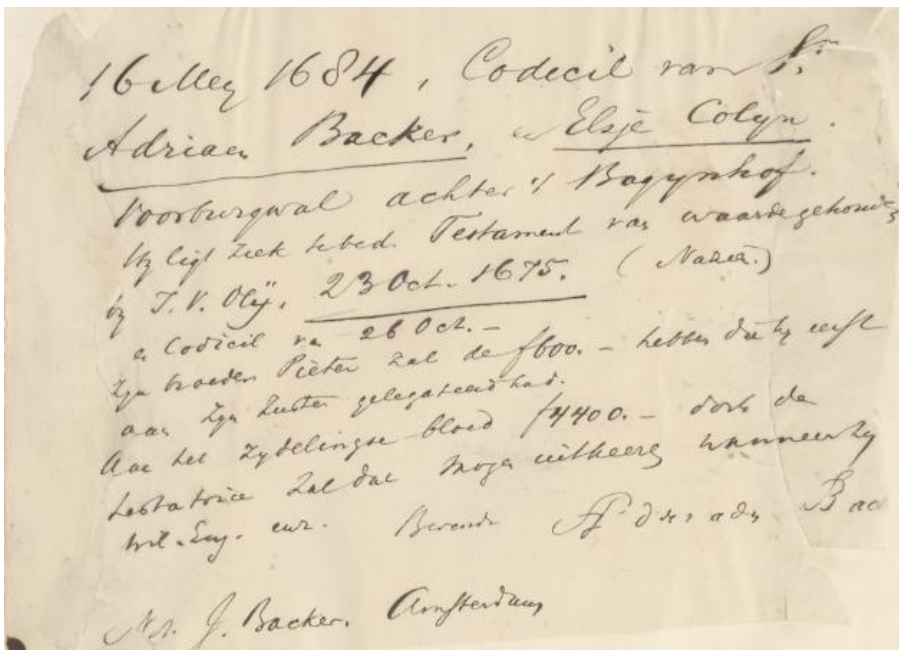 16 Mey 1684, Codicil van Sr.
Adriaen Backer, en Elsje Colyn.
Voorburgwal achter 't Bagynhof.
Hy ligt ziek te bed. Testament van waarde gehouden
by J. V. Olÿ, 23 Oct. 1675. (Nazien.)
en Codicil van 26 Oct. –
Zyn broeder Pieter zal de f600. – hebben die hy eerst
aan zyn zuster gelegateerd had.
Aan het zydelingse bloed f4400. – doch de
testatrice zal dat mogen uitkeeren wanneer zy
wil. Enz. enz. Adriaen Bac
Not. J. Backer. Amsterdam